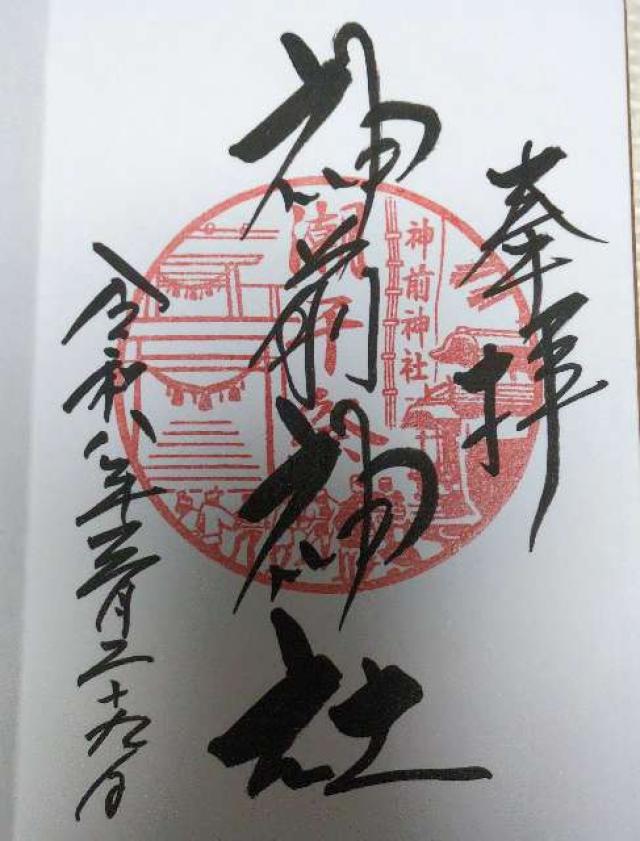 奉拝
神前神社
神前神社
潮干祭
令和八年三月二十九日